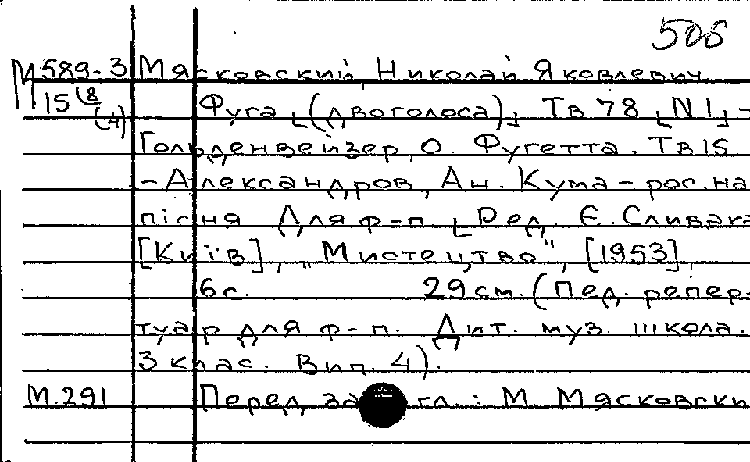 506
М 589-3 Мясковский, Николай Яковлевич
15(8 Фуга [(двоголоса)]. Тв 78 [N 1] -
(4)
Гольденвейзер, О. Фугетта. Тв 15
- Александров, Ан. Кума - рос. на
пісня Для ф-п. [Ред. Є. Сливака
[Київ], "Мистецтво", [1953]
6 с. 29 см. (Пед. репер-
туар для ф-п. Дит. муз. школа.
3 клас. Вип. 4).
М.291 Перед за гл.: М. Мясковски